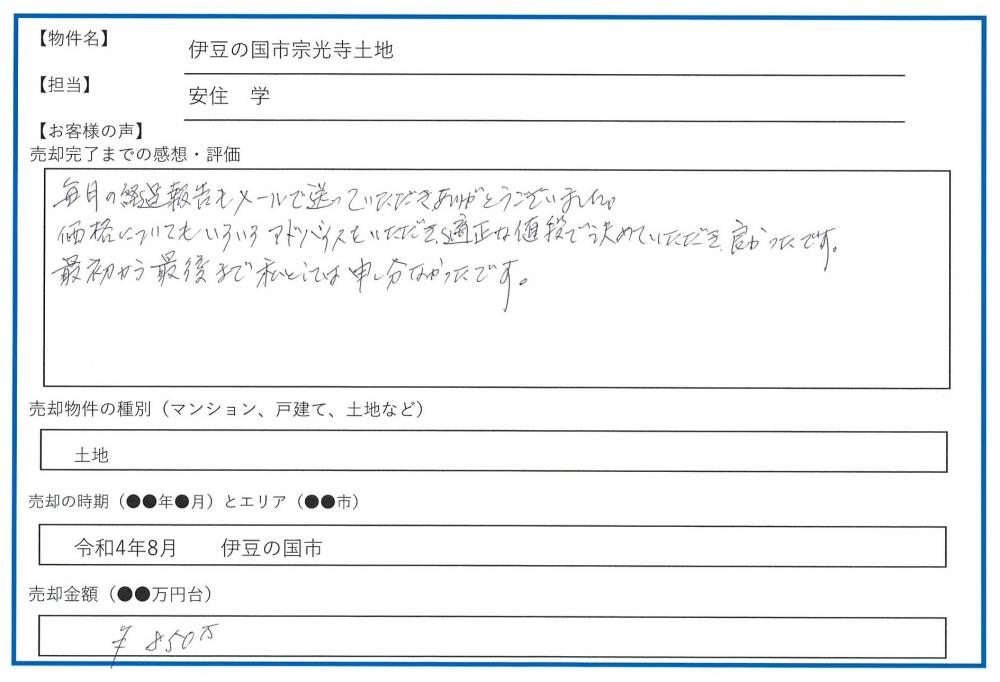 【物件名】
伊豆の国市宗光寺土地
【担当】
安住 学
【お客様の声】
売却完了までの感想・評価
毎月の経過報告もメールで送っていただきありがとうございました。
価格についてもいろいろアドバイスをいただき、適正な値段で決めていただき良かったです。
最初から最後まで私としては申し分なかったです。
売却物件の種別（マンション、戸建て、土地など）
土地
売却の時期（●●年●月）とエリア（●●市）
令和4年8月 伊豆の国市
売却金額（●●万円台）
¥850万